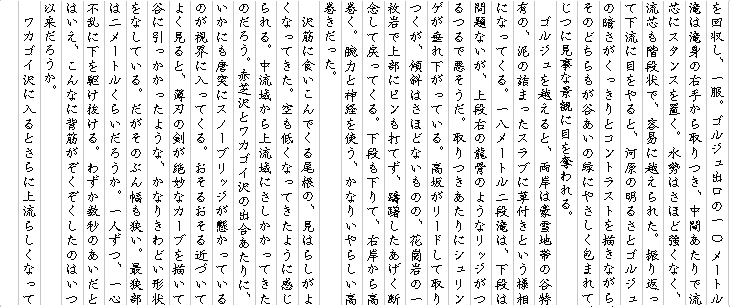 を回収し、一服。ゴルジュ出口の一〇メートル
滝は滝身の右手から取りつき、中間あたりで流
芯にスタンスを置く。水勢はさほど強くなく、
流芯も階段状で、容易に越えられた。振り返っ
て下流に目をやると、河原の明るさとゴルジュ
の暗さがくっきりとコントラストを描きながら、
そのどちらもが谷あいの緑にやさしく包まれて
じつに見事な景観に目を奪われる。
ゴルジュを越えると、両岸は豪雪地帯の谷特
有の、泥の詰まったスラブに草付きという様相
になってくる。一八メートル二段滝は、下段は
問題ないが、上段右の龍骨のようなリッジがつ
るつるで悪そうだ。取りつきあたりにシュリン
ゲが垂れ下がっている。高坂がリードして取り
つくが、傾斜はさほどないものの、花崗岩の一
枚岩で上部にピンも打てず、躊躇したあげく断
念して戻ってくる。下段も下りて、右岸から高
巻く。腕力と神経を使う、かなりいやらしい高
巻きだった。
沢筋に食いこんでくる尾根の、見はらしがよ
くなってきた。空も低くなってきたように感じ
られる。中流域から上流域にさしかかってきた
のだろう。赤芝沢とワカゴイ沢の出合あたりに、
いかにも唐突にスノーブリッジが懸かっている
のが視界に入ってくる。おそるおそる近づいて
よく見ると、薄刃の剣が絶妙なカーブを描いて
谷に引っかかったような、かなりきわどい形状
をなしている。だがそのぶん幅も狭い。最狭部
は二メートルくらいだろうか。一人ずつ、一心
不乱に下を駆け抜ける。わずか数秒のあいだと
はいえ、こんなに背筋がぞくぞくしたのはいつ
以来だろうか。
ワカゴイ沢に入るとさらに上流らしくなって